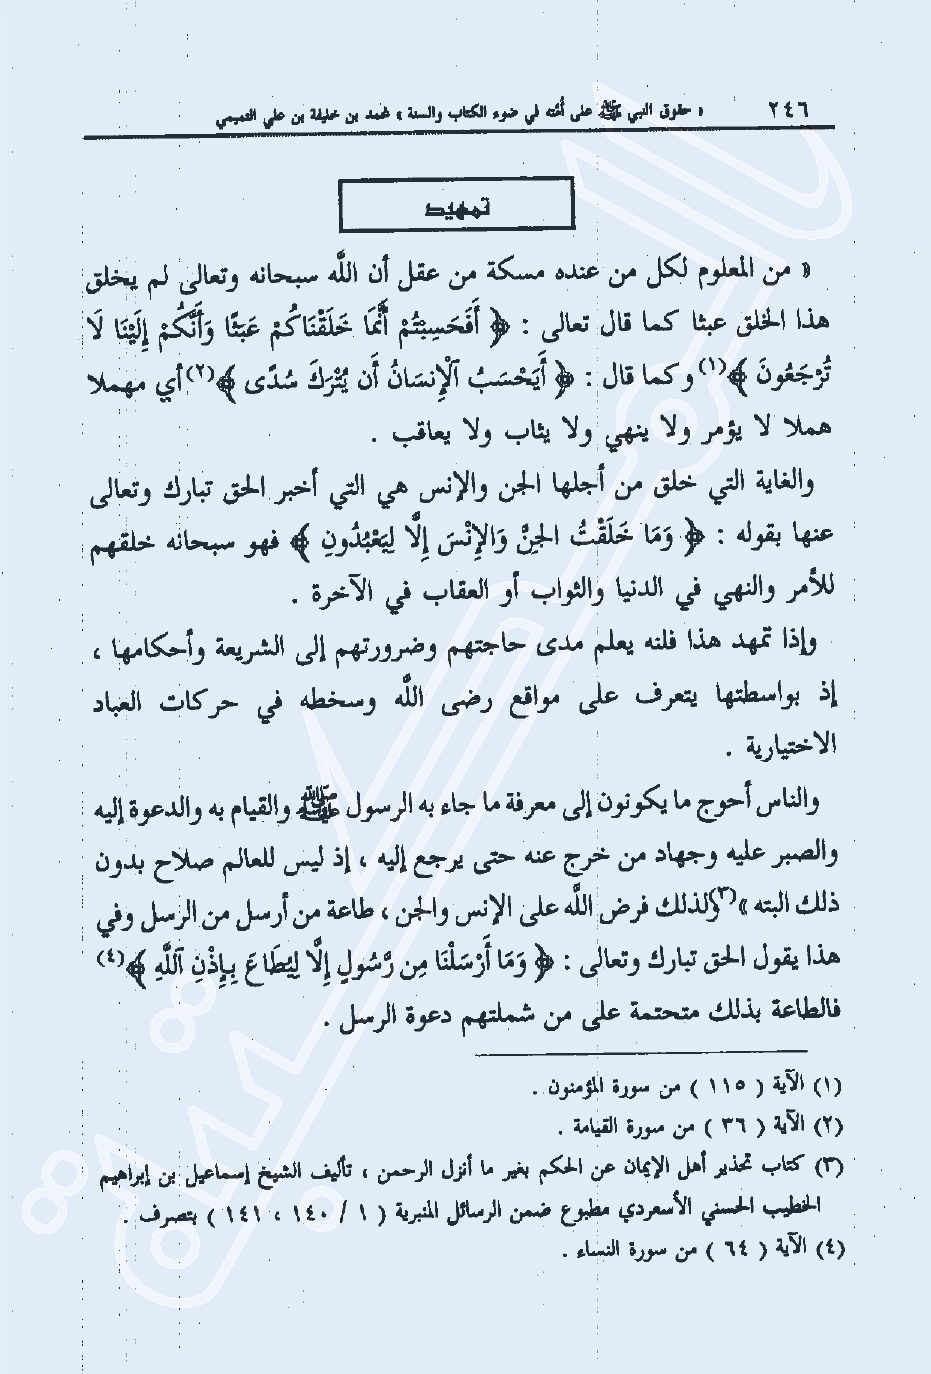 ٢٤٦ « حقوق النبي ﷺ على أُمّته في ضوء الكتاب والسنة » لمحمد بن خليفة بن علي التميمي
تمهيد
« من المعلوم لكل من عنده مسكة من عقل أن اللّٰه سبحانه وتعالى لم يخلق
هذا الخلق عبثا كما قال تعالى : ﴿ أَفَحَسِبْتُمْ أَنَّمَا خَلَقْنَاكُمْ عَبَثًا وَأَنَّكُمْ إِلَيْنَا لَا
تُرْجَعُونَ ﴾(١) وكما قال : ﴿ أَيَحْسَبُ ٱلْإِنسَانُ أَن يُتْرَكَ سُدًى ﴾(٢) أي مهملا
هملا لا يؤمر ولا ينهي ولا يثاب ولا يعاقب .
والغاية التي خلق من أجلها الجن والإنس هي التي أخبر الحق تبارك وتعالى
عنها بقوله : ﴿ وَمَا خَلَقْتُ الجِنَّ وَالإِنْسَ إِلَّا لِيَعْبُدُونِ ﴾ فهو سبحانه خلقهم
للأمر والنهي في الدنيا والثواب أو العقاب في الآخرة .
وإذا تمهد هذا فلنه يعلم مدى حاجتهم وضرورتهم إلى الشريعة وأحكامها ،
إذ بواسطتها يتعرف على مواقع رضى اللّٰه وسخطه في حركات العباد
الاختيارية .
والناس أحوج ما يكونون إلى معرفة ما جاء به الرسول ﷺ والقيام به والدعوة إليه
والصبر عليه وجهاد من خرج عنه حتى يرجع إليه ، إذ ليس للعالم صلاح بدون
ذلك البته »(٣) ولذلك فرض اللّٰه على الإنس والجن ، طاعة من أرسل من الرسل وفي
هذا يقول الحق تبارك وتعالى : ﴿ وَمَا أَرْسَلْنَا مِن رَّسُولٍ إِلَّا لِيُطَاعَ بِإِذْنِ ٱللَّهِ ﴾(٤)
فالطاعة بذلك متحتمة على من شملتهم دعوة الرسل .
(١) الآية ( ١١٥ ) من سورة المؤمنون .
(٢) الآية ( ٣٦ ) من سورة القيامة .
(٣) كتاب تحذير أهل الإيمان عن الحكم بغير ما أنزل الرحمن ، تأليف الشيخ إسماعيل بن إبراهيم
الخطيب الحسني الأسعردي مطبوع ضمن الرسائل المنبرية ( ١ / ١٤٠ ، ١٤١ ) بتصرف .
(٤) الآية ( ٦٤ ) من سورة النساء .